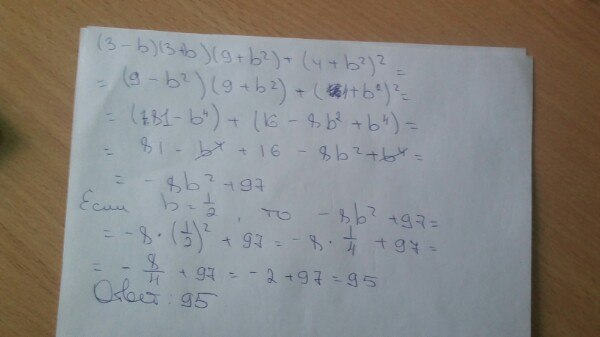 (3-b)(3+b)(9+b²)+(4+b²)² =
= (9-b²)(9+b²)+(4+b²)²=
= (81-b⁴)+(16-8b²+b⁴)=
= 81 - b⁴ + 16 - 8b²+b⁴=
= -8b²+97
Если b=½, то -8b²+97=
= -8·(½)²+97=-8·¼+97=
= -8/4+97=-2+97=95
Ответ: 95